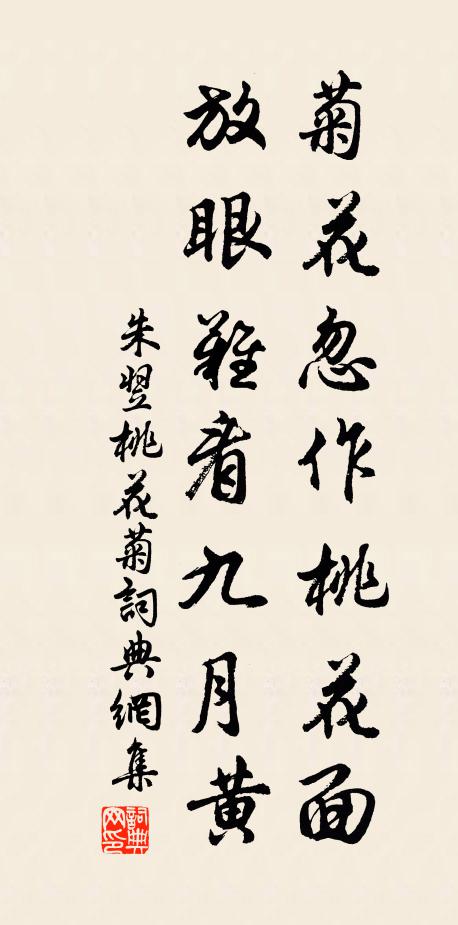 菊花忽作桃花面
放眼難看九月黃
朱翌桃花菊詞典網集
詞典网印